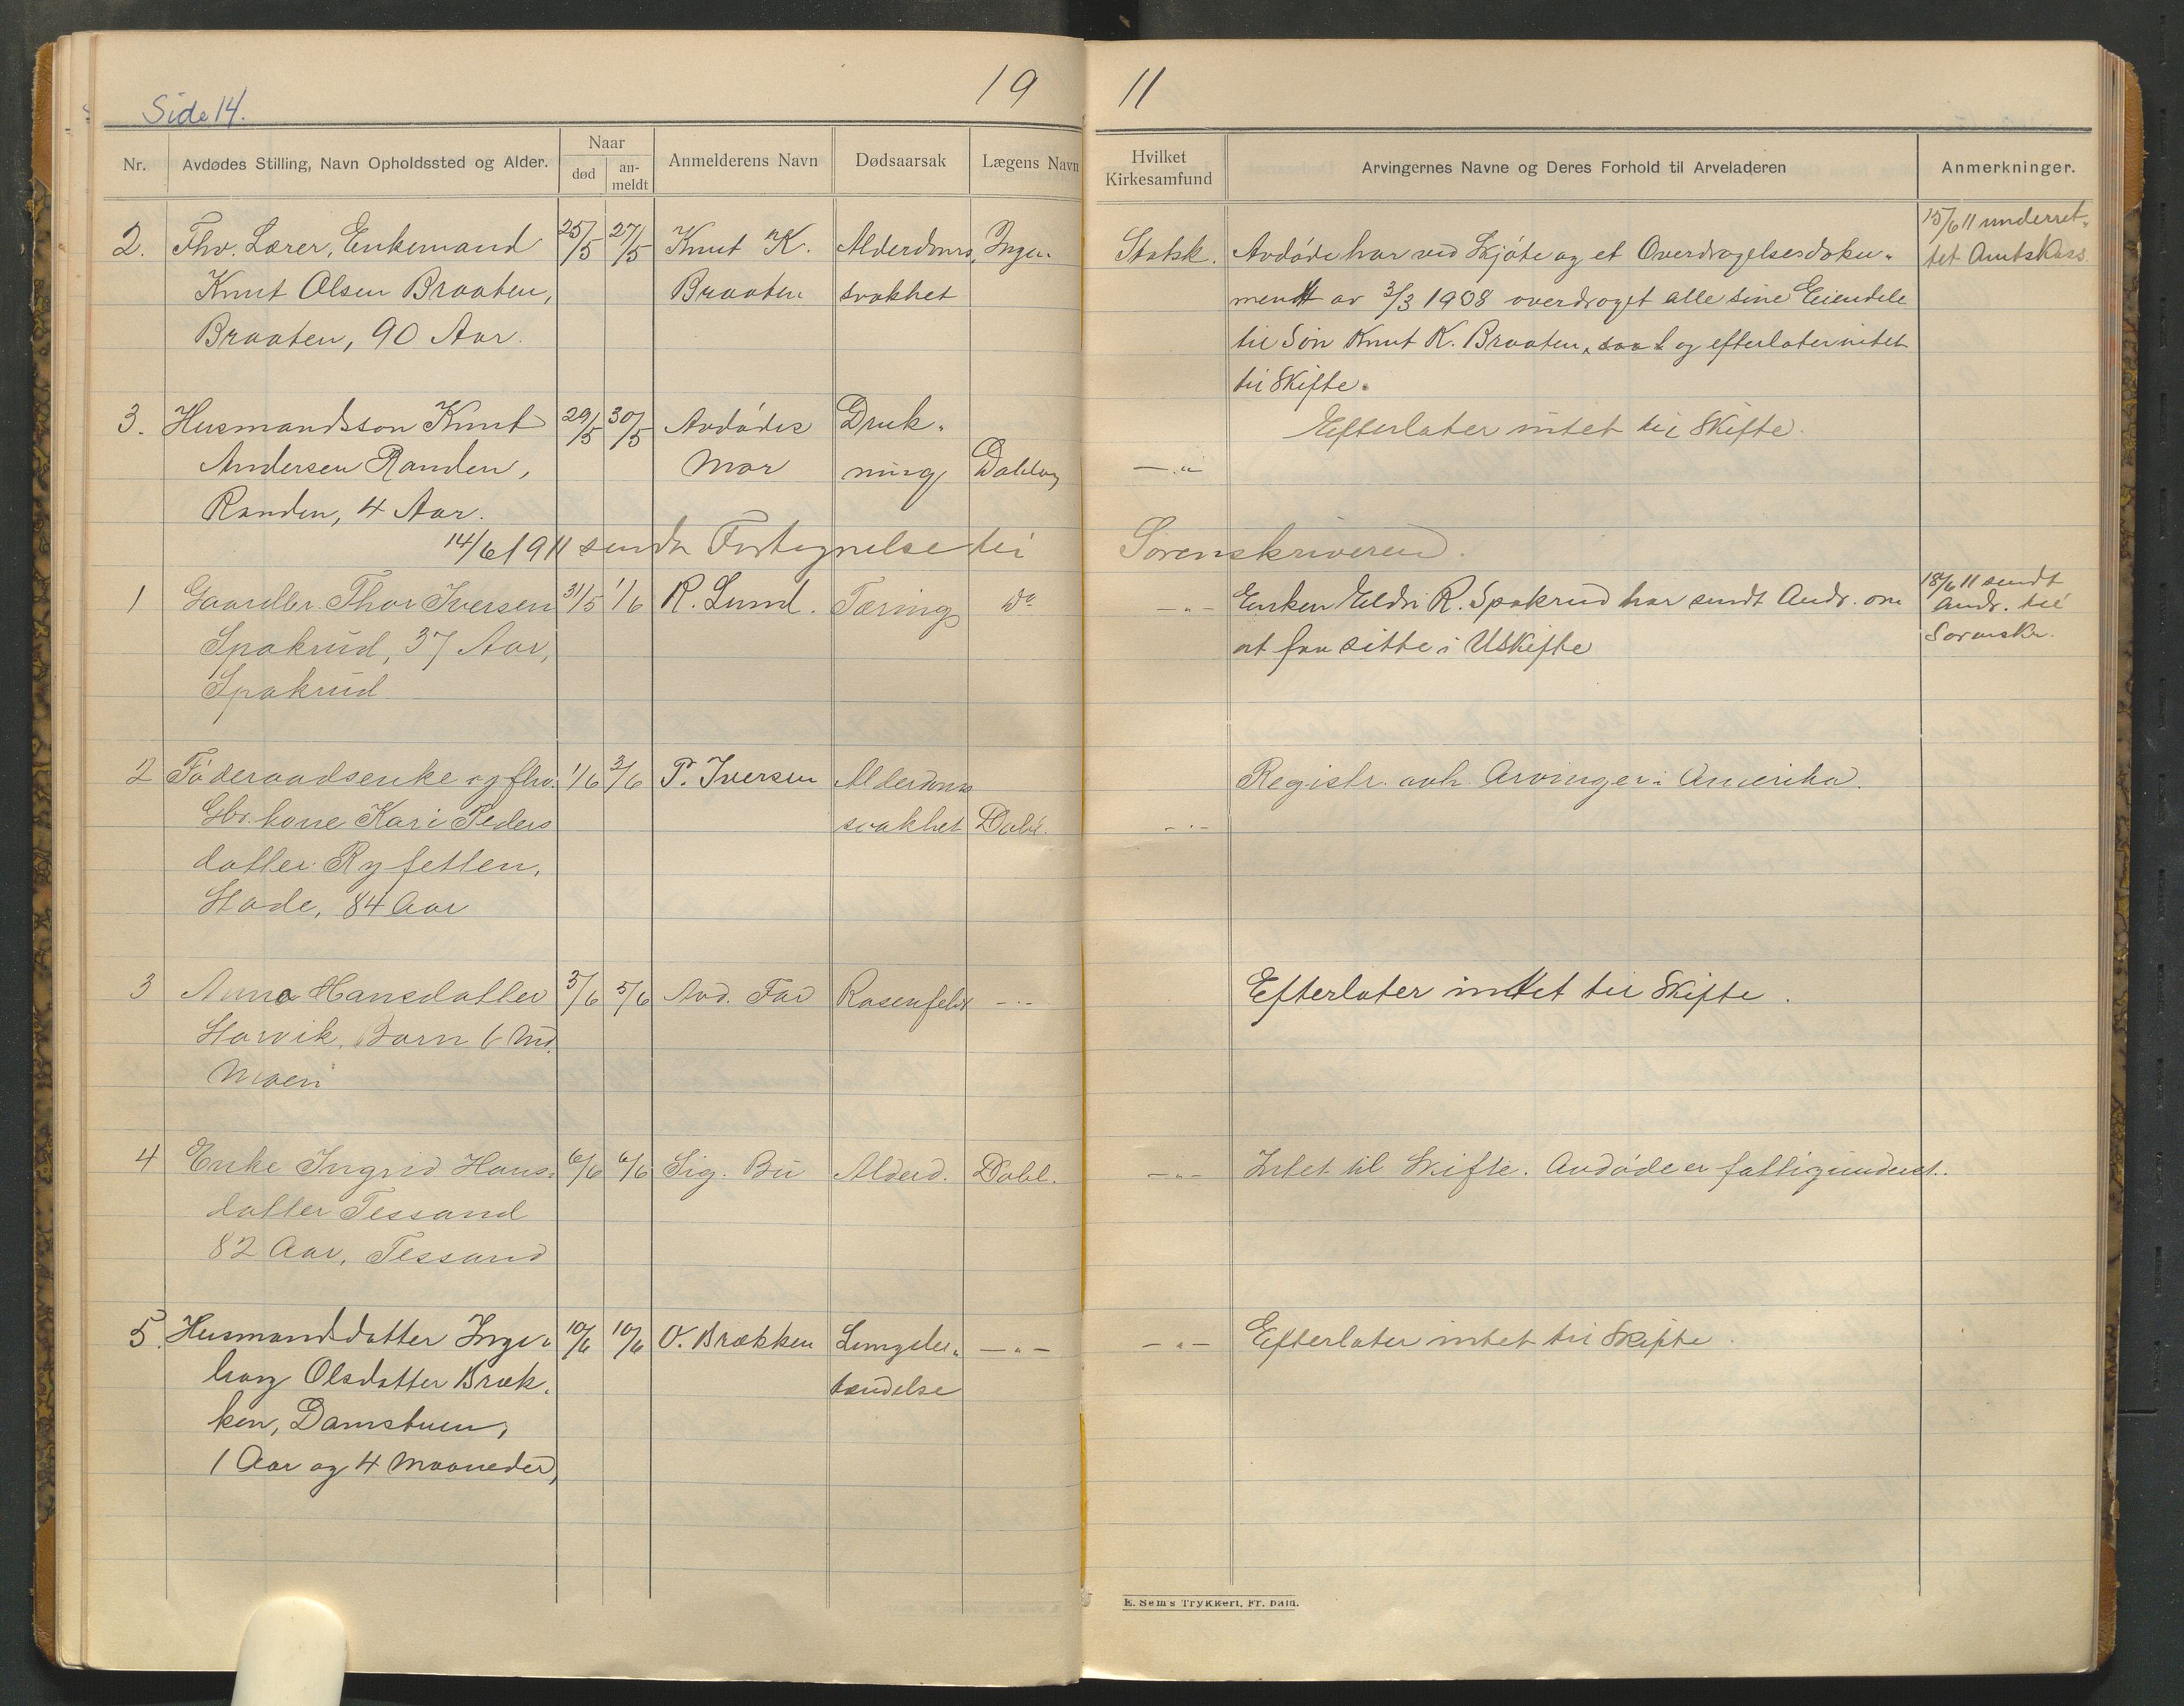 Side 14.
19 11
Nr. Avdødes Stilling, Navn Opholdssted og Alder. Naar død an-meldt Anmelderens Navn Dødsaarsak Lægens Navn Hvilket Kirkesamfund Arvingernes Navne og Deres Forhold til Arveladeren Anmerkninger.
2. Fhv. Lærer, Enkemand 25/5 27/5 Knut K. Alderdoms Ingen Statsk. Avdøde har ved Skjøte og et Overdragelsesdoku- 15/6 11 underret-
Knut Olsen Braaten, Braaten svakhet ment av 3/3 1908 overdraget alle sine Eiendele tet Amtskass.
Braaten, 90 Aar. til Søn Knut K. Braaten, og efterlater intet
til Skifte.
3. Husmandssøn Knut 29/5 30/5 Avdødes Druk- Efterlater intet til Skifte.
Andersen Randen, Mor ning Dahl —"—
Randen, 4 Aar.
14/6 1911 sendt Fortegnelse til Sorenskriveren.
1 Gaardbr. Thor Iversen 31/5 1/6 R. Lund. Tæring do —"— Enken Eldri R. Spakrud har sendt Andr. om 18/6 11 sendt
Spakrud, 37 Aar, at faa sitte i Uskifte Andr. til
Spakrud Sorenskr.
2 Føderaadsenke og fhv. 1/6 3/6 P. Iversen Alderdoms Registr. avh. Arvinger i Amerika.
Gbr.kone Kari Peders svakhet Dahl. —"—
datter Ryfetten,
84 Aar
3 Anna Hansdatter 3/6 5/6 Avd. Far Rosenfeber —"— Efterlater intet til Skifte.
Harvik, Barn 6 Md.
Moen
4 Enke Ingrid Hans- 6/6 6/6 Sig. Bu Alderd. Dahl. —"— Intet til Skifte. Avdøde er fattigunderst.
datter Tessand
82 Aar, Tessand
5. Husmandsdatter Inge- 10/6 10/6 O. Brækken Lungebe- —"— —"— Efterlater intet til Skifte.
borg Olsdatter Bræk- tændelse
ken, Damstuen,
1 Aar og 4 Maaneder,
E. Sem's Trykkeri, Fr. hald.